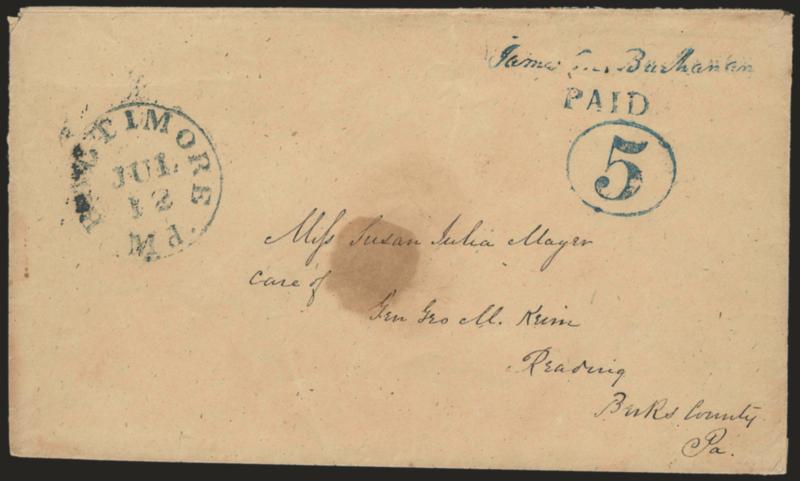 James M. Buchanan
PAID
5
BALTIMORE
JUL
12
PM
Miss Susan Julia Mayer
Care of
Gen Geo M. Keim
Reading
Berks County
Pa.